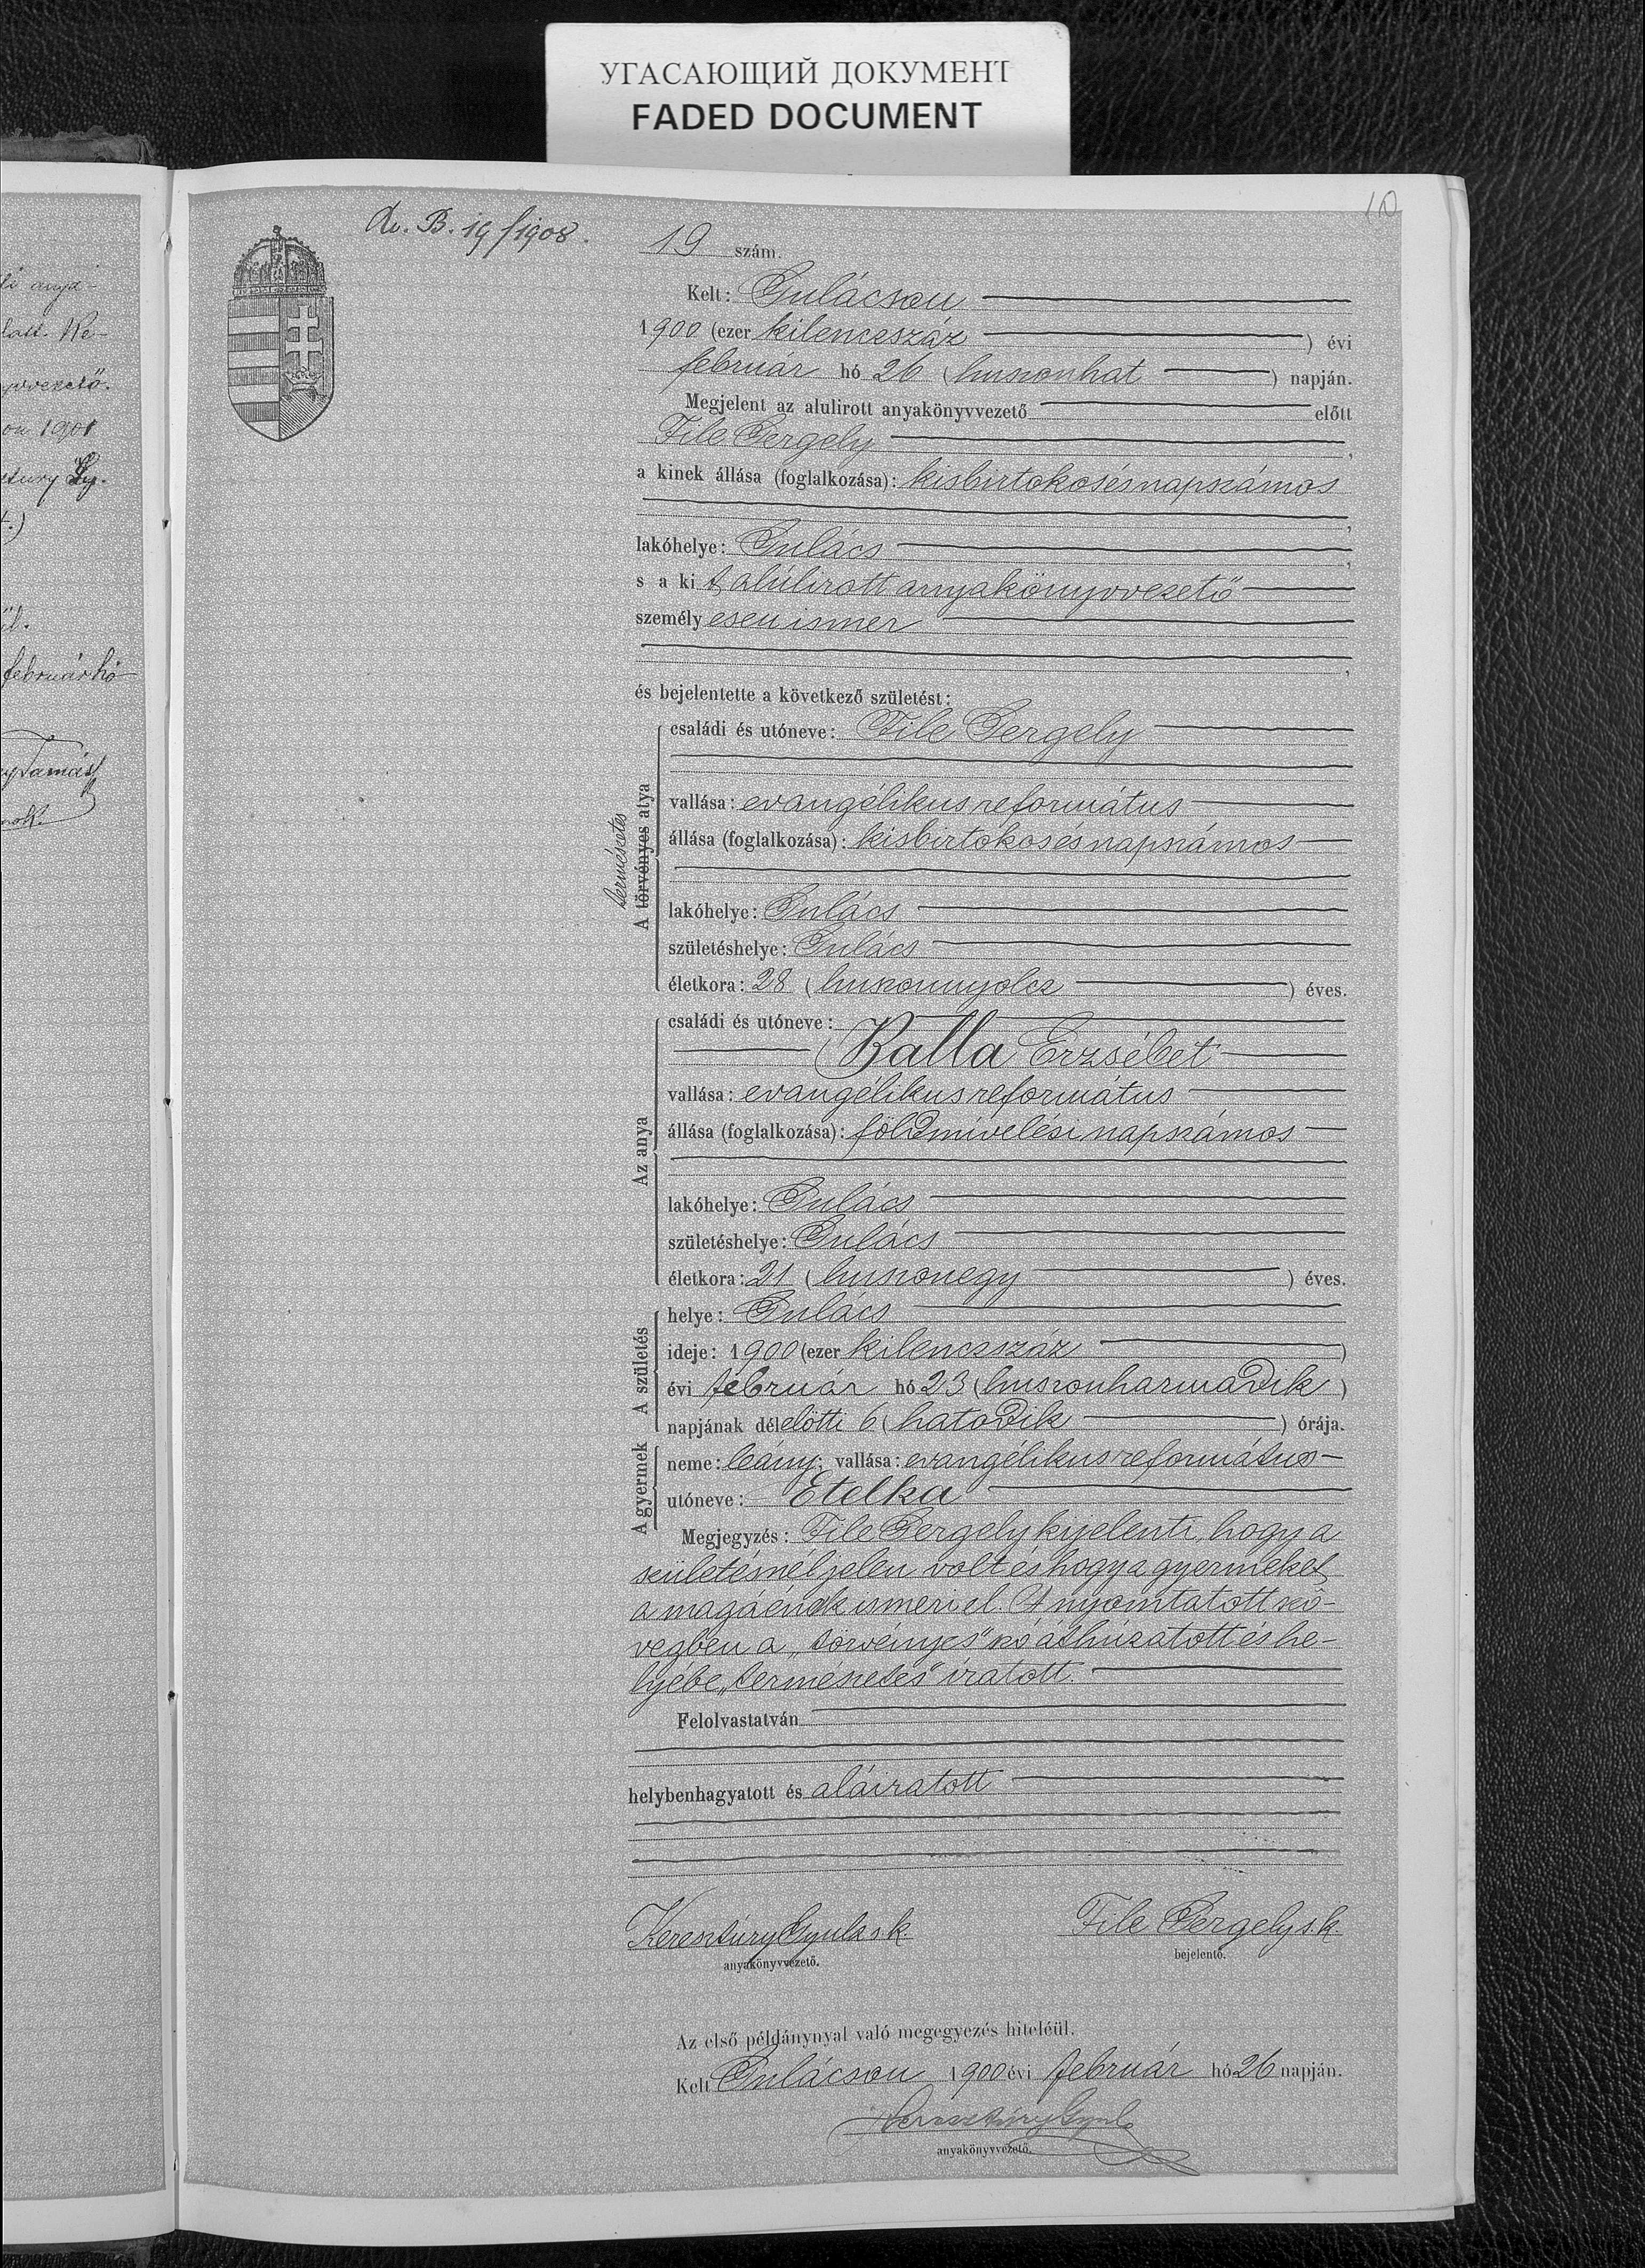 УГАСАЮЩИЙ ДОКУМЕНТ
FADED DOCUMENT
10
B. 19/1908.
19 szám.
Kelt: Gulácson
1900 (ezer kilencszáz) évi
február hó 26 (huszonhat) napján.
Megjelent az alulirott anyakönyvvezető előtt
File Gergely,
a kinek állása (foglalkozása): kisbirtokos és napszámos
,
lakóhelye: Gulács,
s a kit alúlirott anyakönyvvezető
személyesen ismer
,
és bejelentette a következő születést:
A törvényes atya
természetes
családi és utóneve: File Gergely
vallása: evangélikus református
állása (foglalkozása): kisbirtokos és napszámos
lakóhelye: Gulács
születéshelye: Gulács
életkora: 28 (huszonnyolcz) éves.
Az anya
családi és utóneve:
Balla Erzsébet
vallása: evangélikus református
állása (foglalkozása): földmivelési napszámos
lakóhelye: Gulács
születéshelye: Gulács
életkora: 21 (huszonegy) éves.
A születés
helye: Gulács
ideje: 1900 (ezer kilencszáz)
évi február hó 23 (huszonharmadik)
napjának délelőtti 6 (hatodik) órája.
A gyermek
neme: leány; vallása: evangélikus református
utóneve: Etelka
Megjegyzés: File Gergely kijelenti, hogy a
születésnél jelen volt és hogy a gyermeket
a magáénak ismeri el. A nyomtatott szö-
vegben a „törvényes" szó áthúzatott és he-
lyébe „természetes" iratott.
Felolvastatván
helybenhagyatott és aláiratott
Keresztúry Gyula s. k.
anyakönyvvezető.
File Gergely s. k.
bejelentő.
Az első példánynyal való megegyezés hiteléül.
Kelt Gulácson 1900 évi február hó 26 napján.
Keresztúry Gyula
anyakönyvvezető.
latt. Ke-
yvvezető.
on 1901
sztury Gy.
február hó
y Tamás
nok.